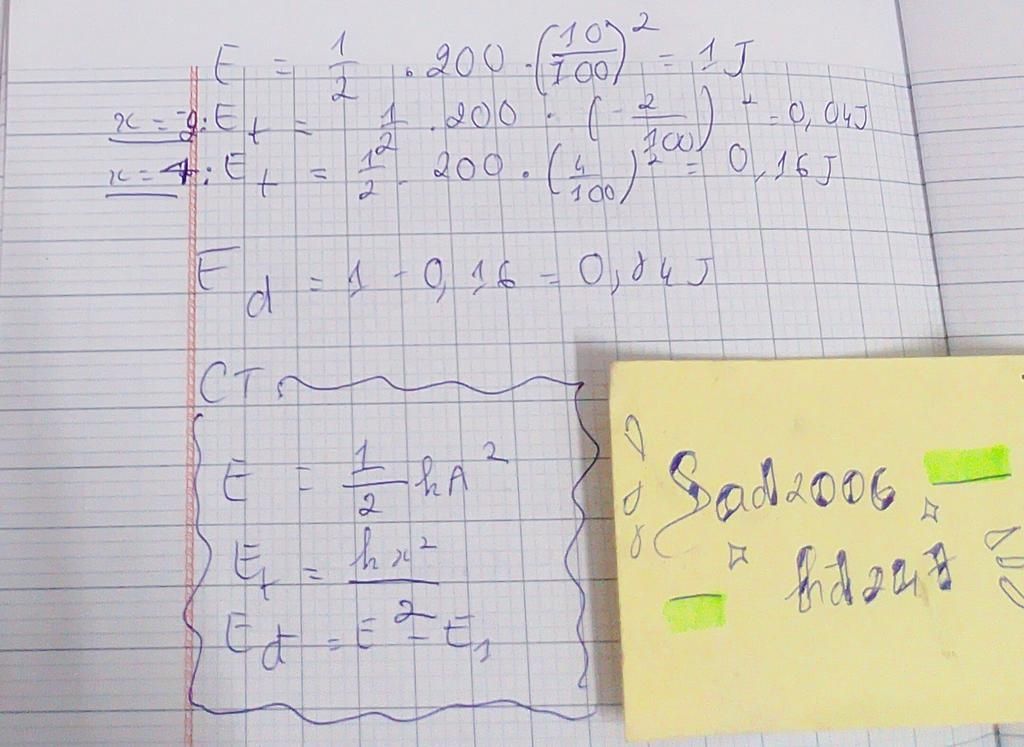 E = 1/2 . 200 . (10/100)² = 1 J
x = -2: E_t = 1/2 . 200 . (-2/100)² = 0,04J
x = 4: E_t = 1/2 . 200 . (4/100)² = 0,16J
E_d = 1 - 0,16 = 0,84J
CT:
E = 1/2 kA²
E_t = kx²/2
E_d = E - E_1
Sad2006
hd247